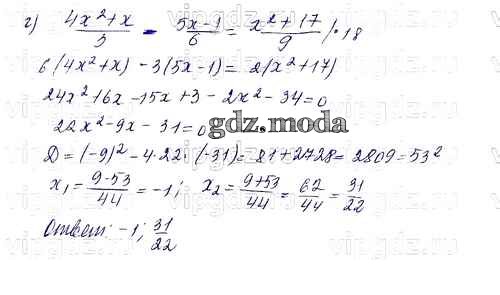 г) (4x²+x)/3 - (5x-1)/6 = (x²+17)/9 /·18
6(4x²+x) - 3(5x-1) = 2(x²+17)
24x²+6x-15x+3-2x²-34=0
22x²-9x-31=0
gdz.moda
D=(-9)²-4·22·(-31)=81+2728=2809=53²
x₁=(9-53)/44=-1; x₂=(9+53)/44=62/44=31/22
Ответ: -1; 31/22